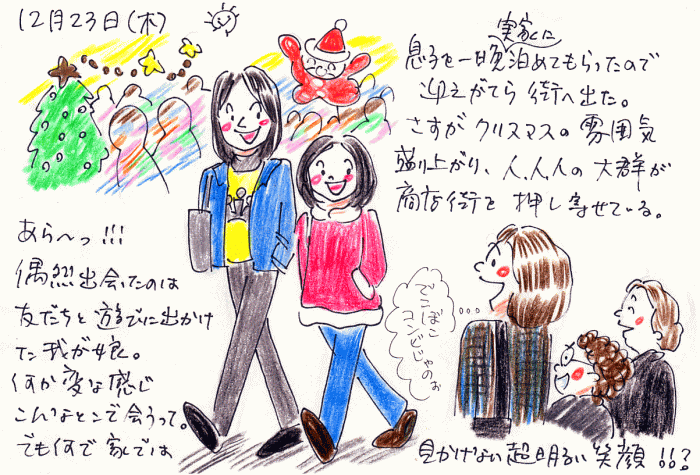 12月23日(木)
実家に
息子を一晩泊めてもらったので
迎えがてら街へ出た。
さすがクリスマスの雰囲気
盛り上がり、人、人、人の大群が
商店街を押し寄せている。
あら〜っ!!!
偶然出会ったのは
友だちと遊びに出かけ
てた我が娘。
何か変な感じ
こんなとこで会うって。
でも何で家では
見かけない超明るい笑顔!!?
でこぼこ
コンビじゃのぉ
…